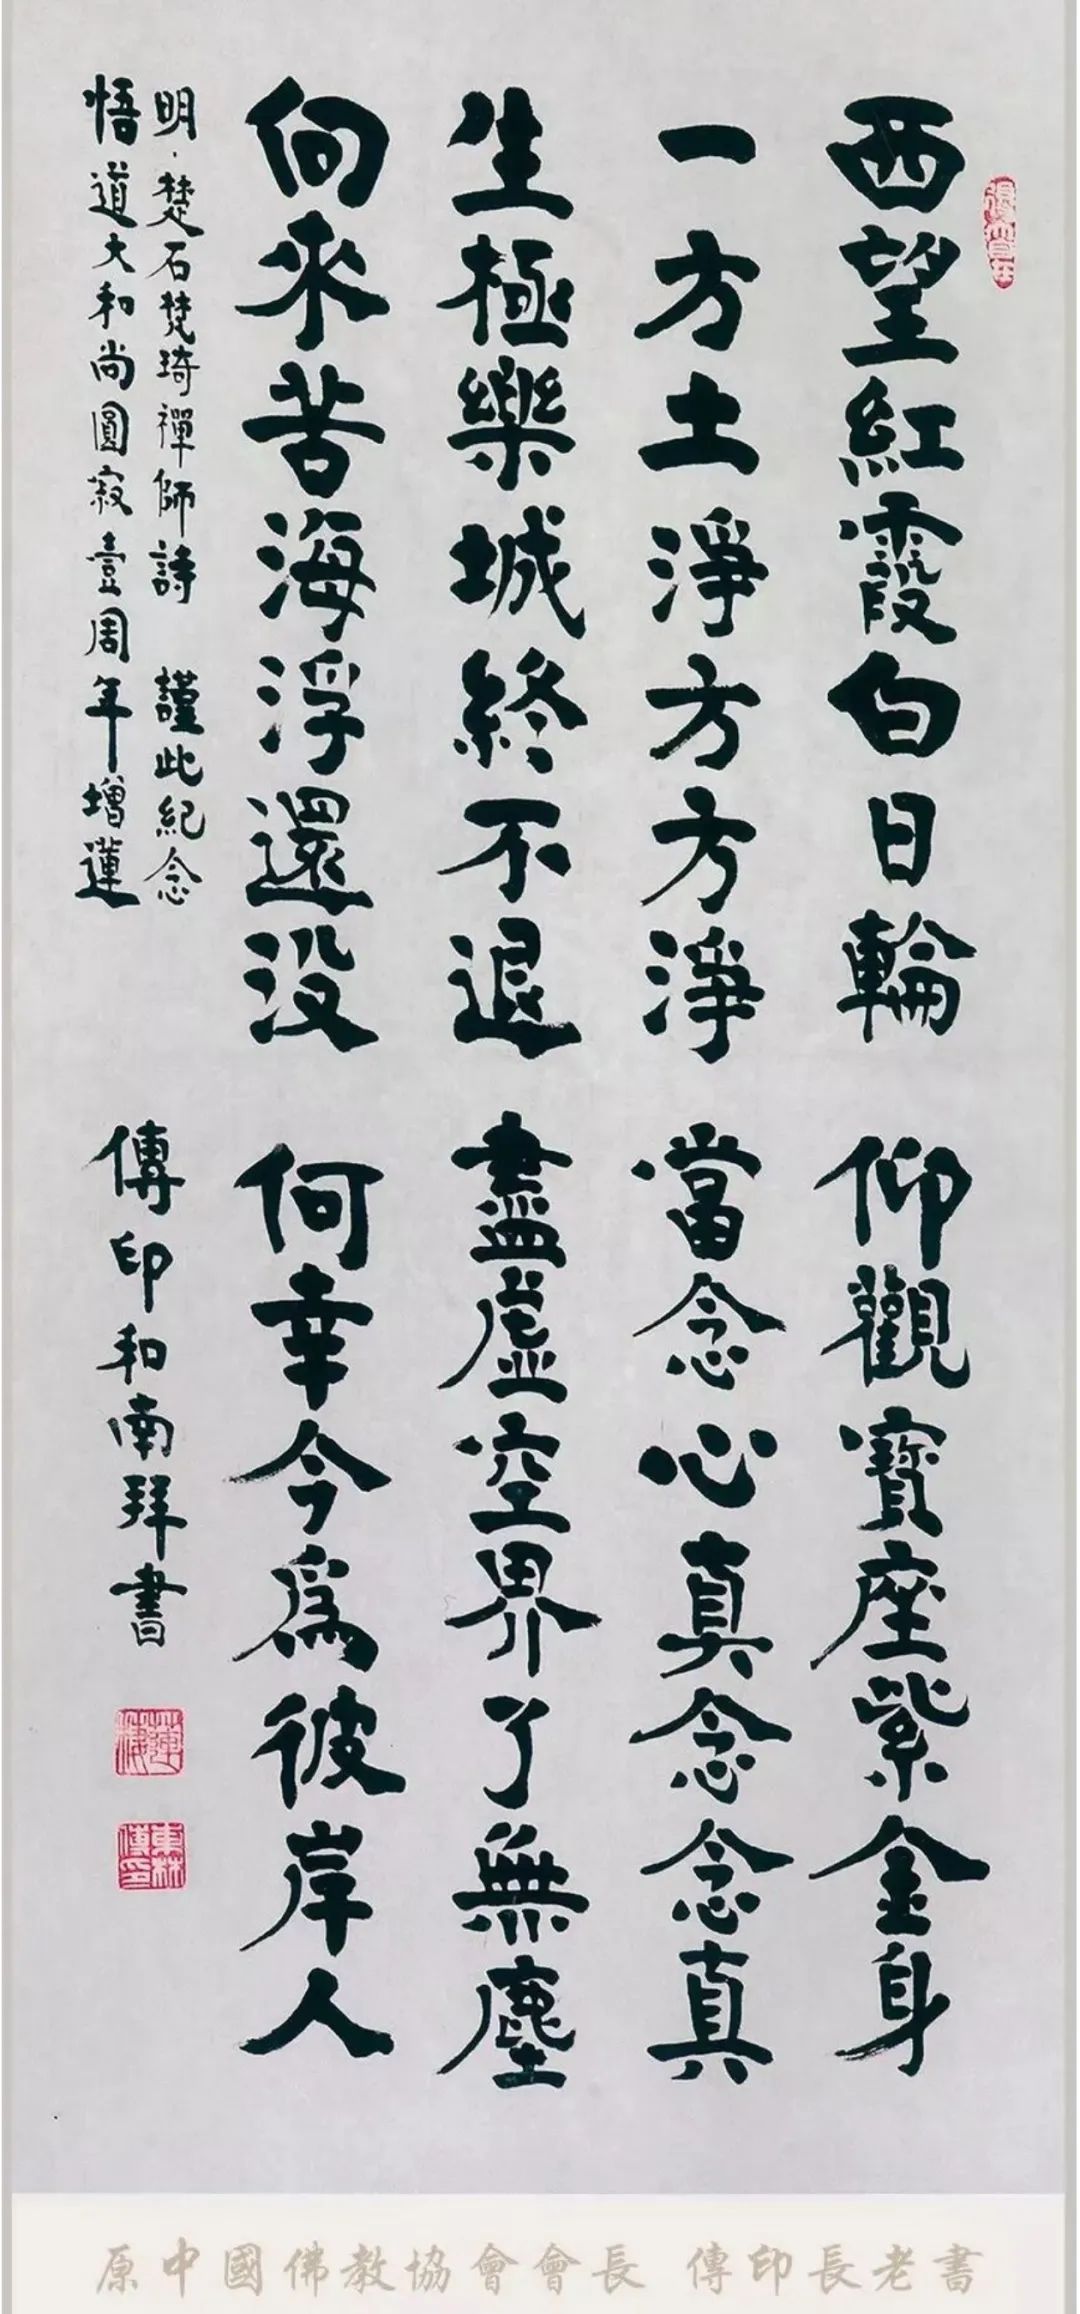 西望紅霞白日輪　仰觀寶座紫金身
一方土淨方方淨　當念心真念念真
生極樂城終不退　盡虛空界了無塵
向來苦海浮還没　何幸今爲彼岸人
明·楚石梵琦禪師詩　謹此紀念
悟道大和尚圓寂壹周年增蓮
傳印和南拜書
東林傳印
原中國佛教協會會長　傳印長老書